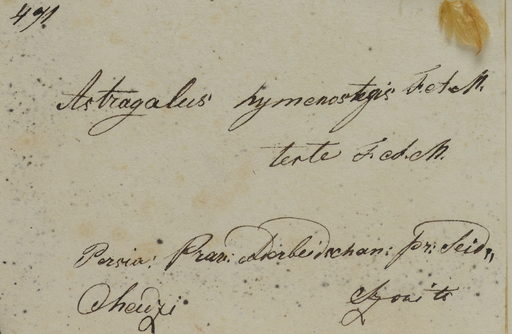 491
Astragalus hymenostegis F. et M.
teste F. et M.
Persia: Prov: Aderbeidschan: pr: Seid,
Chodzi Szovits